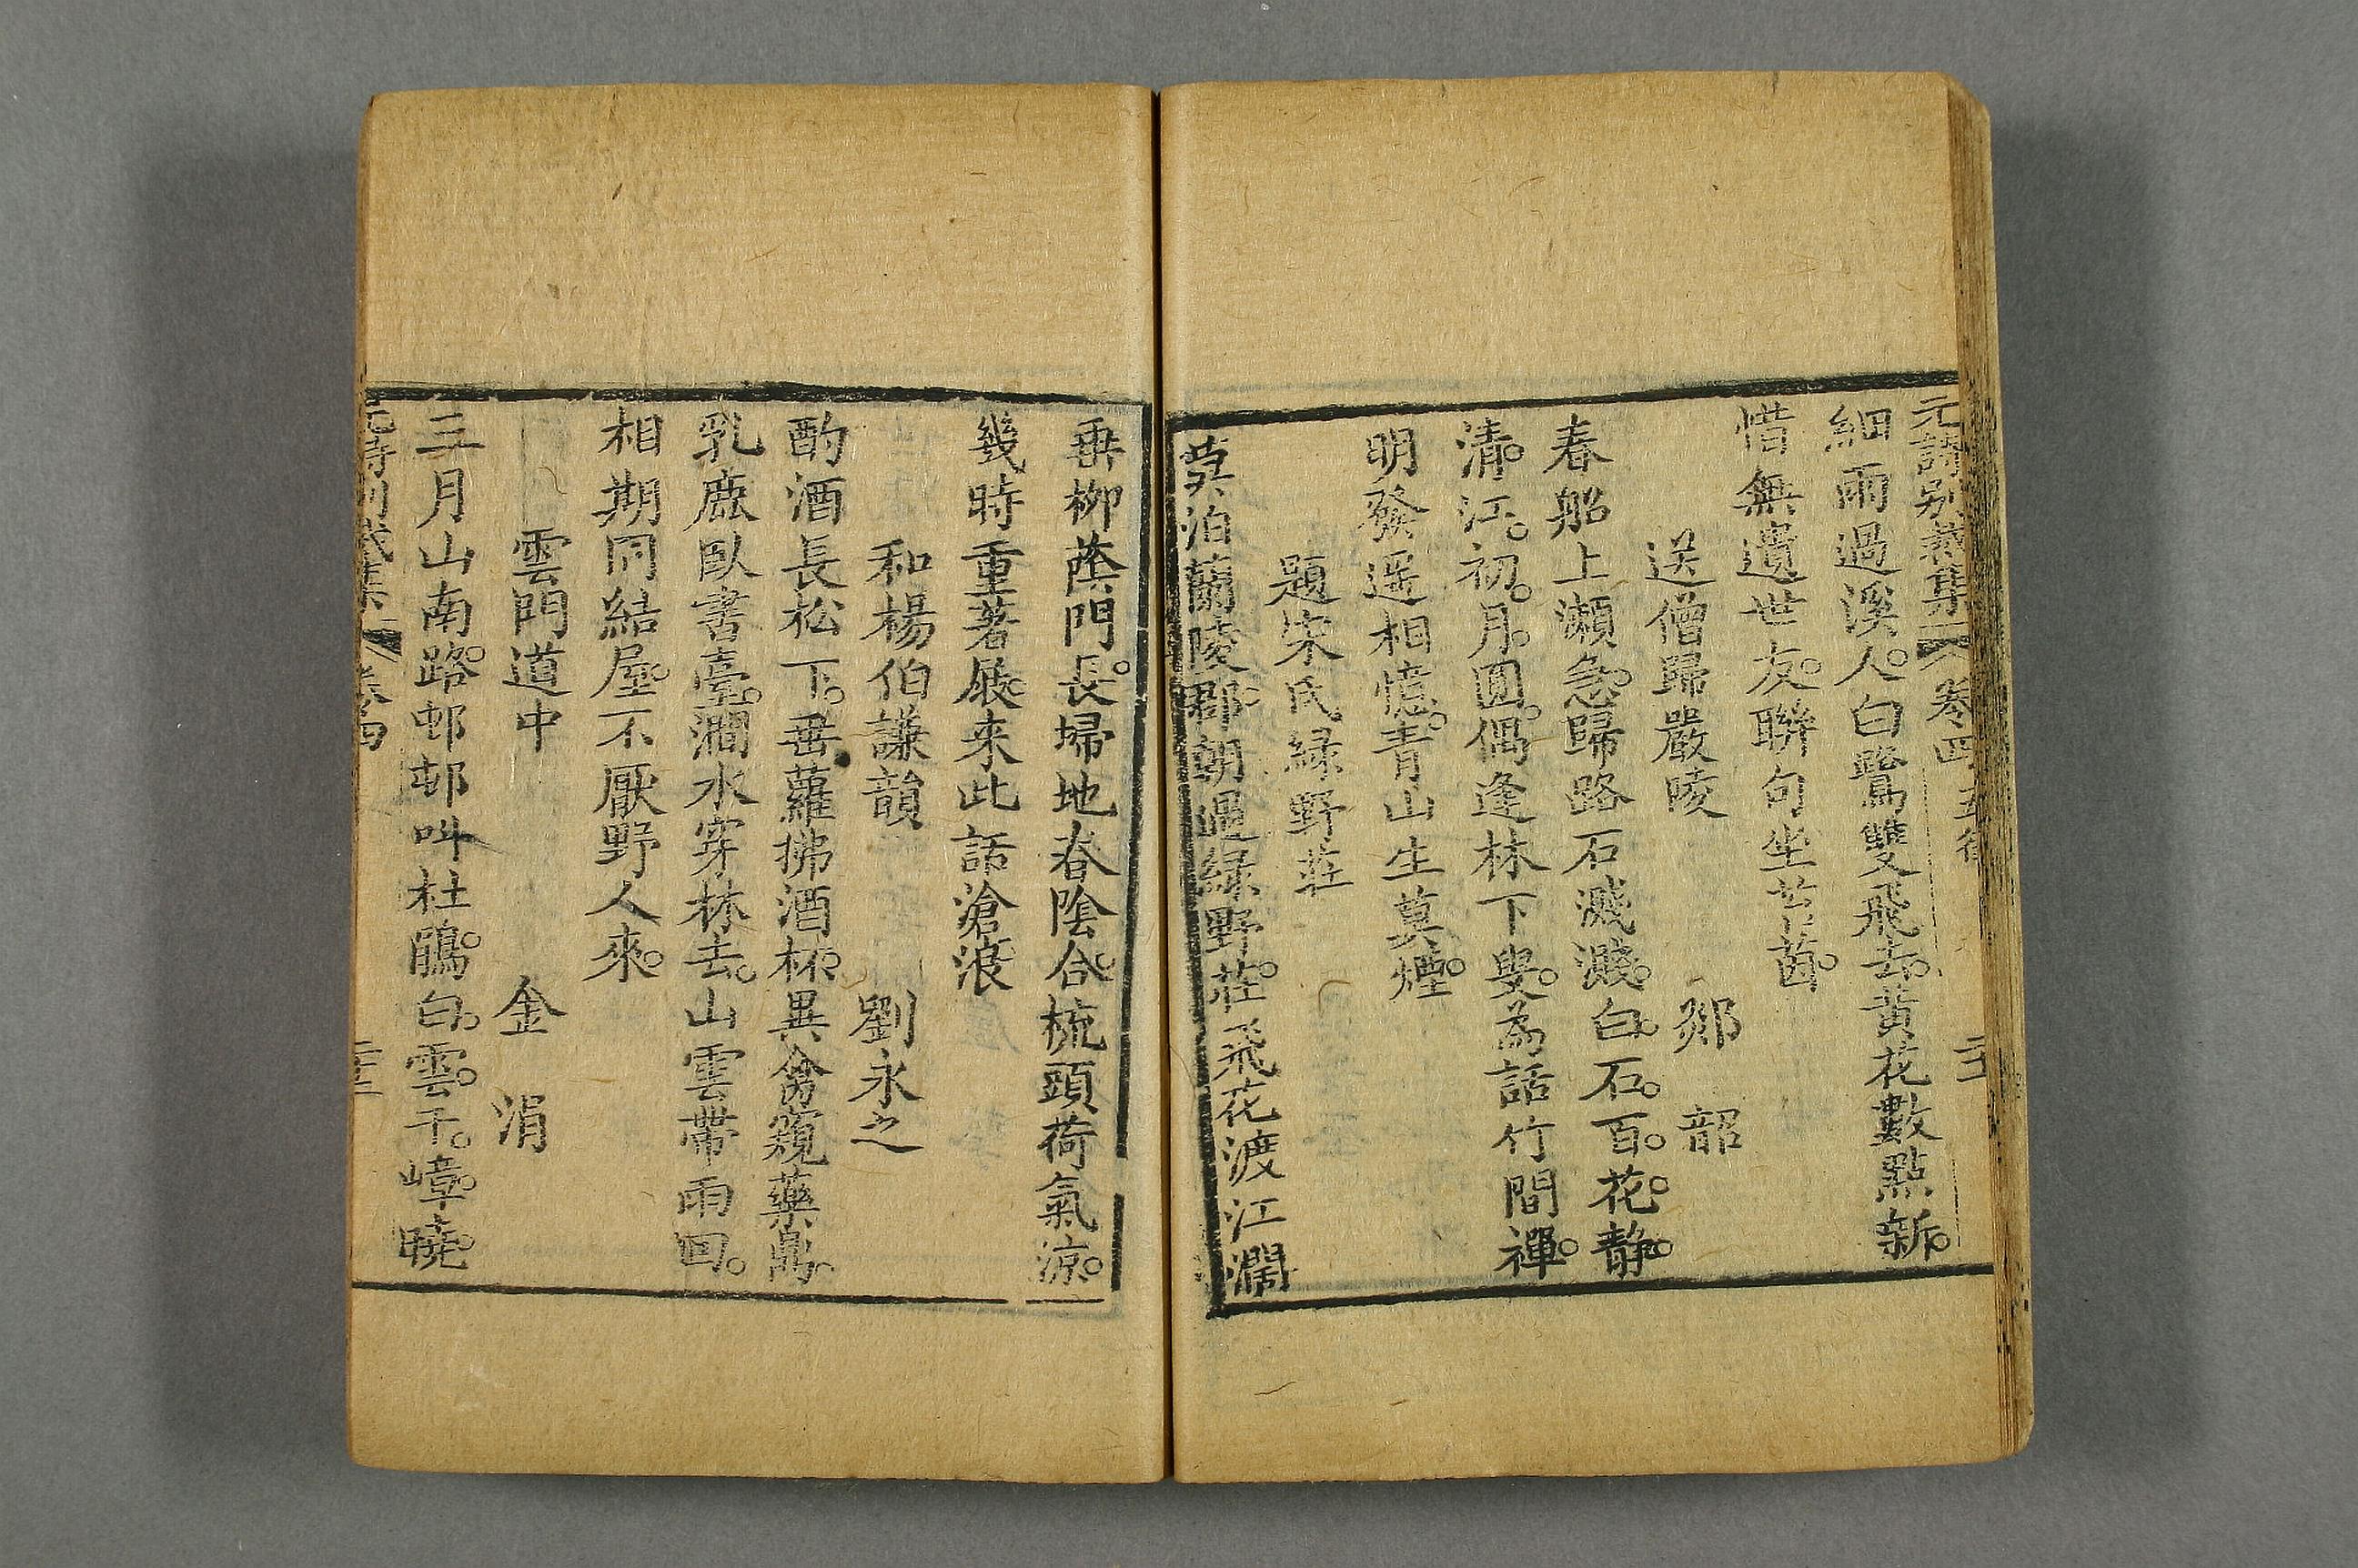 元詩別裁集 卷四 五律
細雨過溪人。白鷺雙飛去。黃花數點新。
惜無遺世友。聯句坐苔茵。
送僧歸嚴陵 郯韶
春船上瀨急。歸路石濺濺。白石百花靜。
清江初月圓。偶逢林下叟。為話竹間禪。
明發遥相憶。青山生莫煙。
題宋氏緑野莊
莫泊蘭陵郡。朝過緑野莊。飛花渡江濶
垂柳蔭門長。掃地春陰合。梳頭荷氣涼。
幾時重著屐。来此話滄浪。
和楊伯謙韻 劉永之
酌酒長松下。垂蘿拂酒杯。異禽窺藥鼎。
乳鹿臥書臺。澗水穿林去。山雲帶雨回。
相期同結屋。不厭野人來。
雲門道中 金涓
三月山南路。邨邨叫杜鵑。白雲千嶂曉。